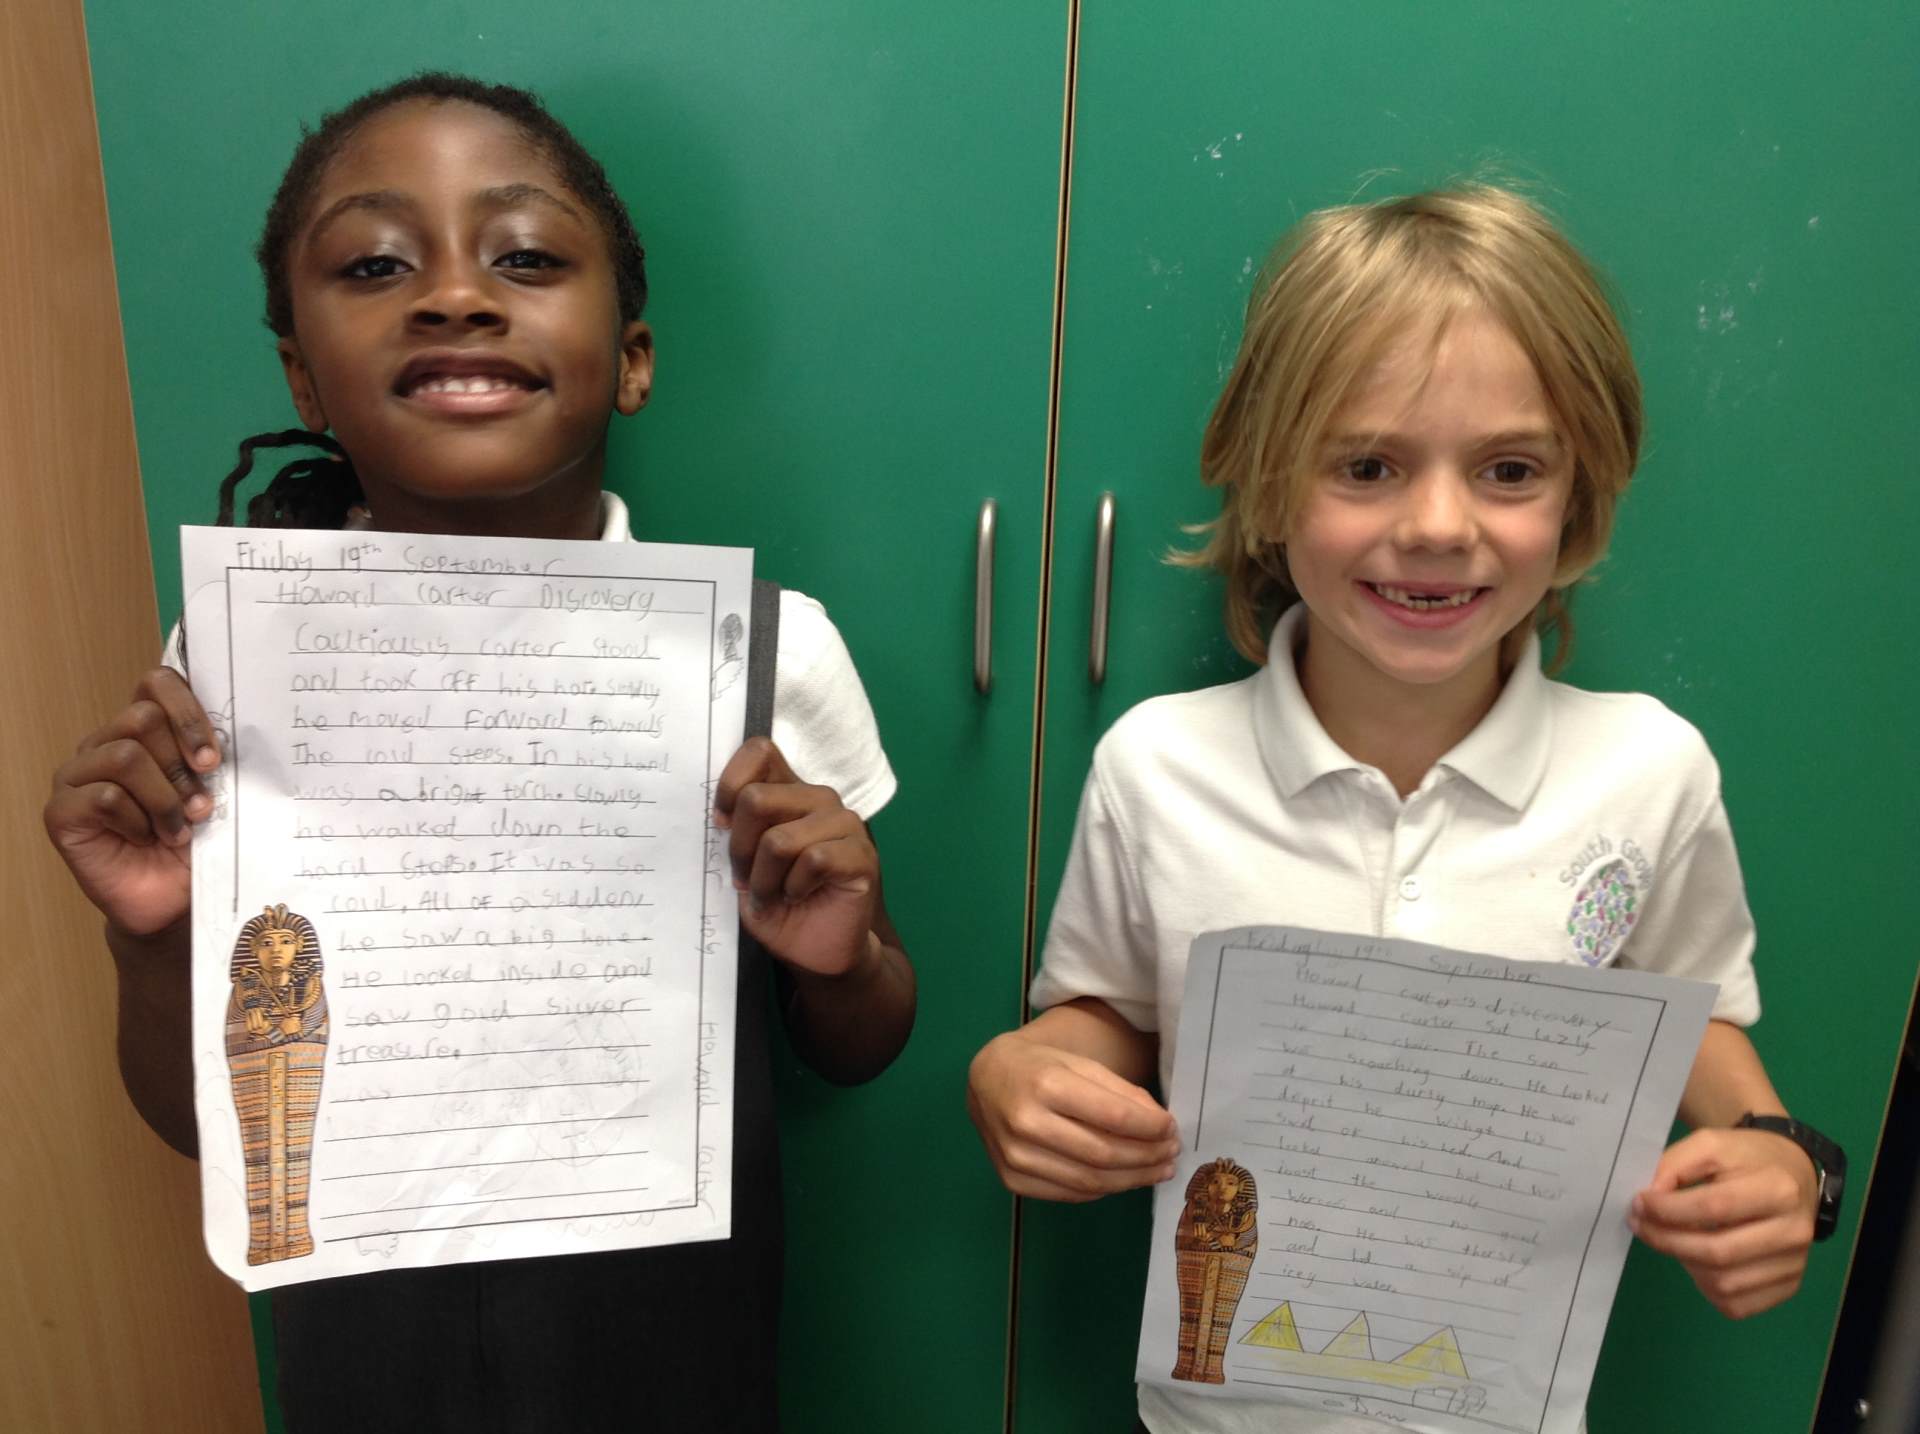 Friday 19th September
Howard Carter Discovery
Cautiously carter stood
and took off his hat. Slowly
he moved forward towards
The cold steps. In his hand
was a bright torch. Slowly
he walked down the
hard steps. It was so
cold. All of a sudden,
he saw a big hole.
He looked inside and
saw gold silver
treasure.
Howard Carter
South Grov
Friday 19th September
Howard carter's discovery
Howard carter sat lazly
in his chair. The san
was scoaching down. He looked
at his dursty map. He was
he his
swet of his hed. And
looked around but it was
the
and no good
He was thersty
and had a sip of
icey water.